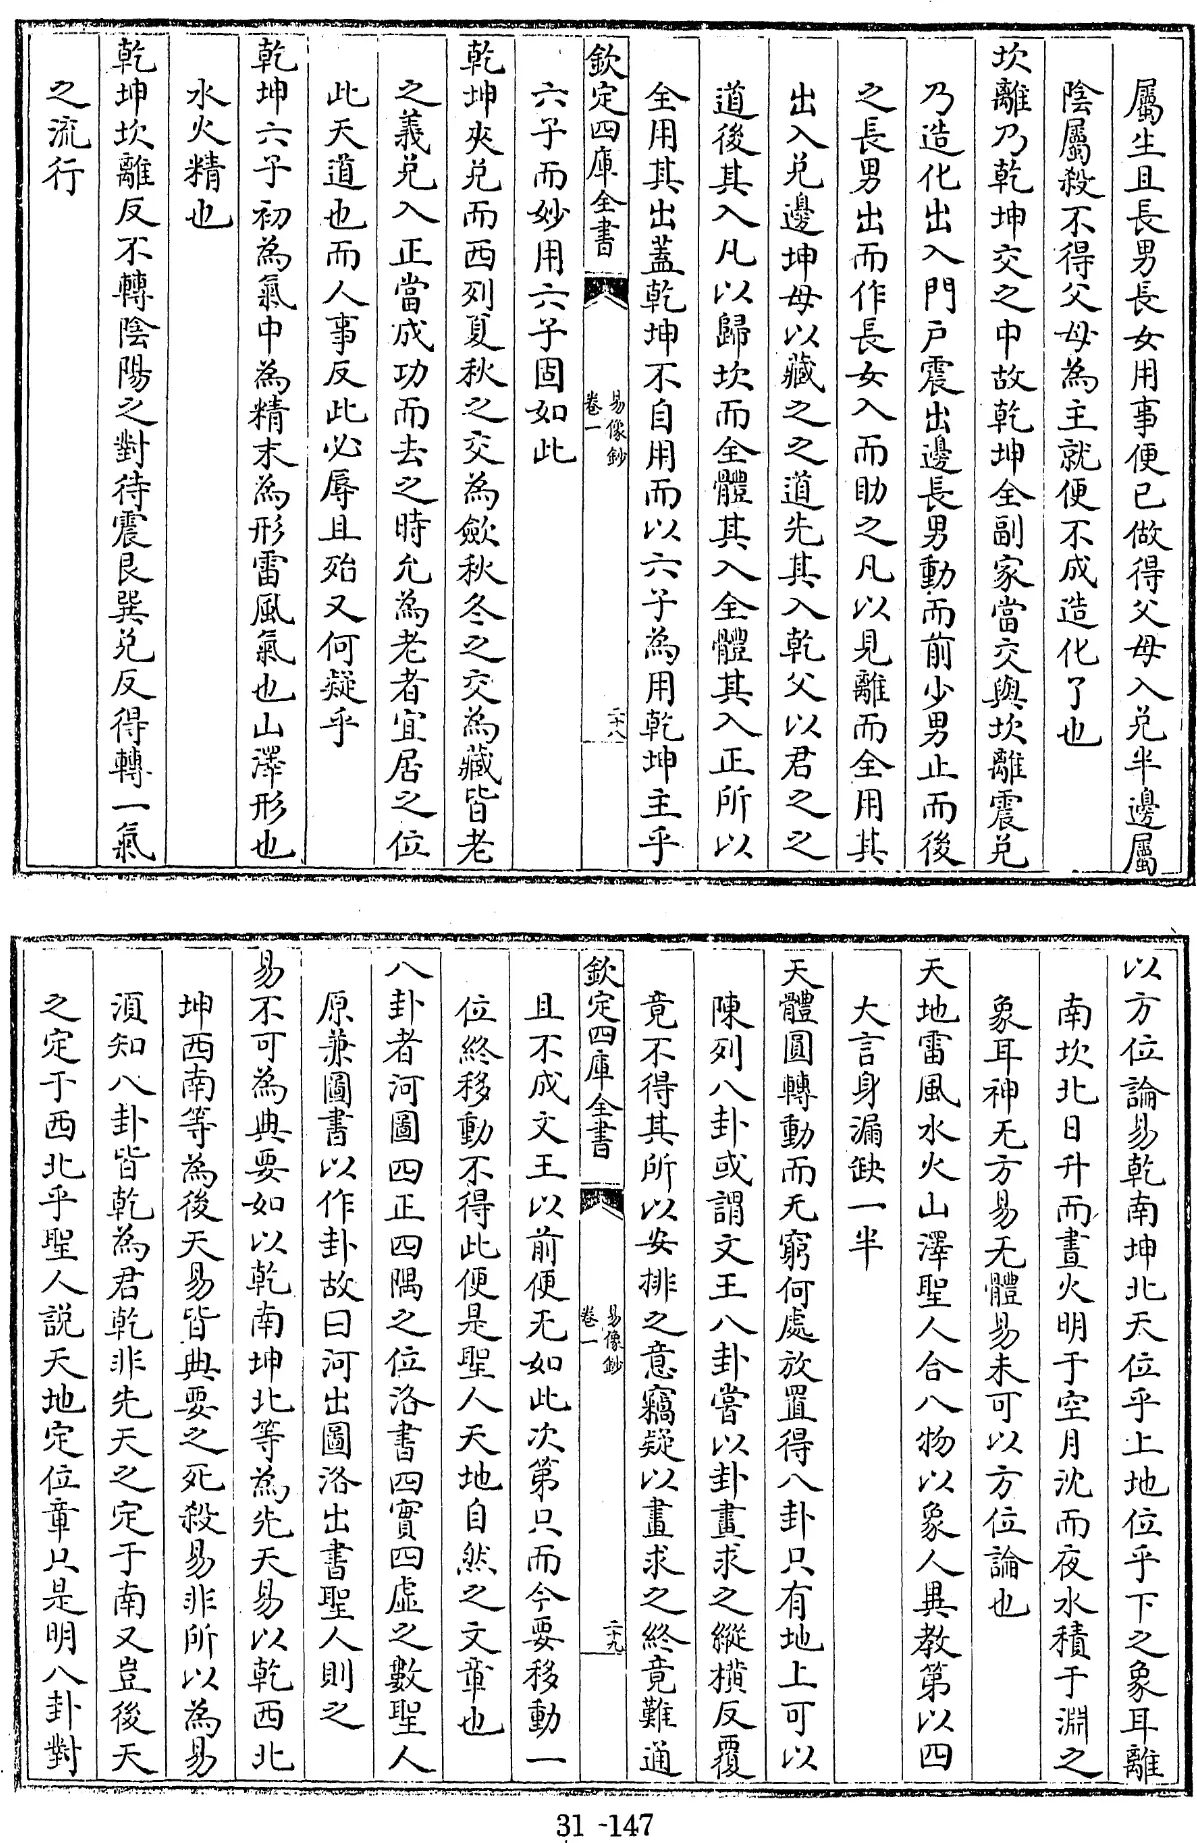 屬生且長男長女用事便已做得父母入兌半邊屬
陰屬殺不得父母為主就便不成造化了也
坎離乃乾坤交之中故乾坤全副家當交與坎離震兌
乃造化出入門戶震出邊長男動而前少男止而後
之長男出而作長女入而助之凡以見離而全用其
出入兌邊坤母以藏之之道先其入乾父以君之之
道後其入凡以歸坎而全體其入全體其入正所以
全用其出蓋乾坤不自用而以六子為用乾坤主乎
欽定四庫全書
易像鈔
卷一
二十八
六子而妙用六子固如此
乾坤夾兌而西列夏秋之交為歛秋冬之交為藏皆老
之義兌入正當成功而去之時允為老者宜居之位
此天道也而人事反此必辱且殆又何疑乎
乾坤六子初為氣中為精末為形雷風氣也山澤形也
水火精也
乾坤坎離反不轉陰陽之對待震艮巽兌反得轉一氣
之流行
以方位論易乾南坤北天位乎上地位乎下之象耳離
南坎北日升而晝火明于空月沈而夜水積于淵之
象耳神无方易无體易未可以方位論也
天地雷風水火山澤聖人合八物以象人異教第以四
大言身漏缺一半
天體圓轉動而无窮何處放置得八卦只有地上可以
陳列八卦或謂文王八卦嘗以卦畫求之縱橫反覆
竟不得其所以安排之意竊疑以畫求之終竟難通
欽定四庫全書
易像鈔
卷一
二十九
且不成文王以前便无如此次第只而今要移動一
位終移動不得此便是聖人天地自然之文章也
八卦者河圖四正四隅之位洛書四實四虛之數聖人
原兼圖書以作卦故曰河出圖洛出書聖人則之
易不可為典要如以乾南坤北等為先天易以乾西北
坤西南等為後天易皆典要之死殺易非所以為易
須知八卦皆乾為君乾非先天之定于南又豈後天
之定于西北乎聖人說天地定位章只是明八卦對
31-147